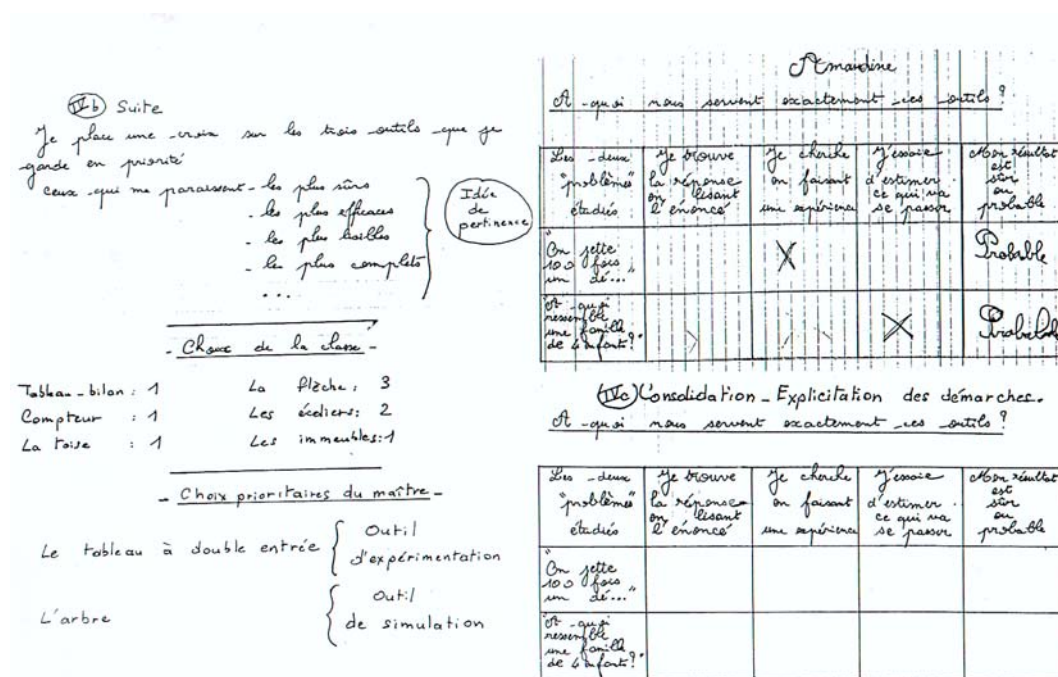 IVb Suite
Je place une croix sur les trois outils que je
garde en priorité
ceux qui me paraissent - les plus sûrs
- les plus efficaces
- les plus lisibles
- les plus complets
...
Idée
de
pertinence
- Choix de la classe -
Tableau-bilan : 1 La flèche : 3
Compteur : 1 Les écoliers : 2
La toise : 1 Les immeubles : 1
- Choix prioritaires du maître -
Le tableau à double entrée { Outil
d'expérimentation
L'arbre { Outil
de simulation
Amandine
A quoi nous servent exactement ces outils ?
Les deux "problèmes" étudiés | Je trouve la réponse en lisant l'énoncé | Je cherche en faisant une expérience | J'essaie d'estimer ce qui va se passer | Mon résultat est sûr ou probable
"On jette 100 fois un dé..." | | X | | Probable
"A quoi ressemble une famille de 4 enfants ?" | | | X | Probable
IVc Consolidation - Explicitation des démarches.
A quoi nous servent exactement ces outils ?
Les deux "problèmes" étudiés | Je trouve la réponse en lisant l'énoncé | Je cherche en faisant une expérience | J'essaie d'estimer ce qui va se passer | Mon résultat est sûr ou probable
"On jette 100 fois un dé..."
"A quoi ressemble une famille de 4 enfants ?"